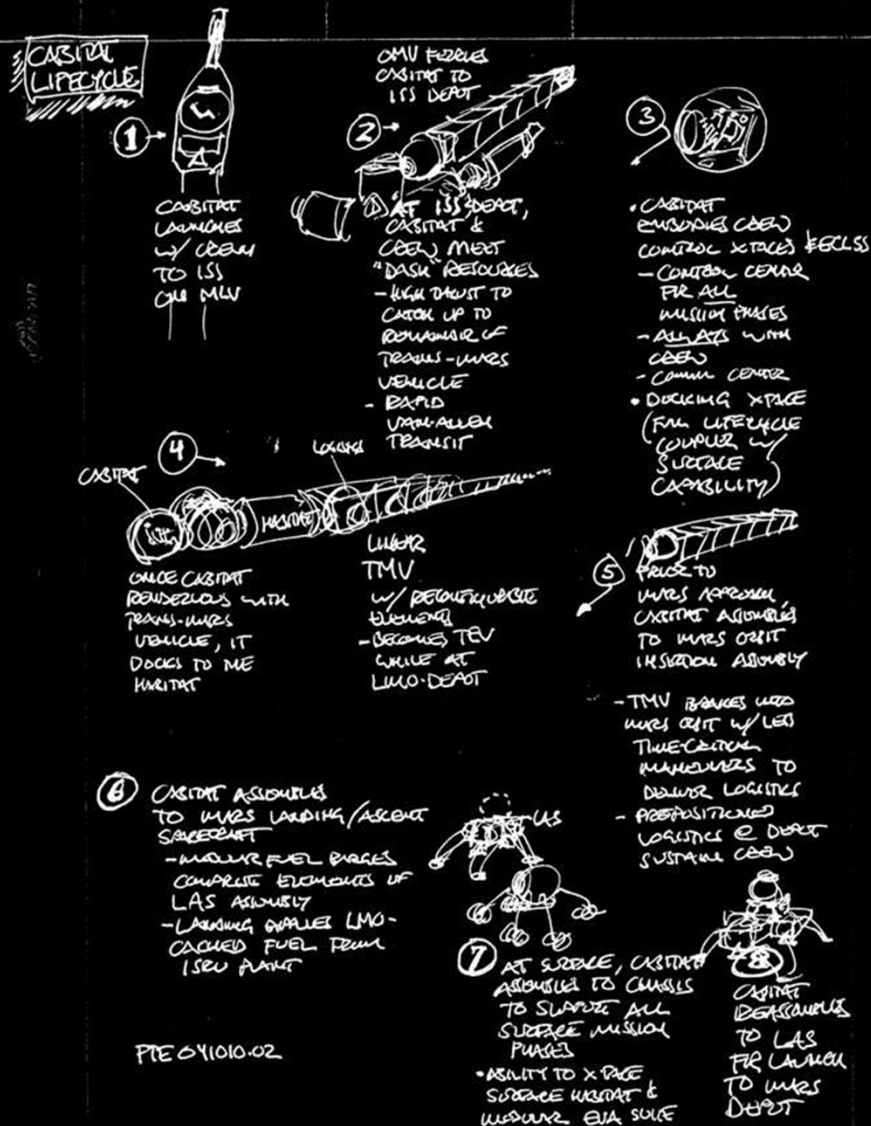 CABITAT
LIFECYCLE
1
CABITAT
LAUNCHES
W/ CREW
TO ISS
ON MLV
OMV FERRIES
CABITAT TO
ISS DEPOT
2
AT ISS DEPOT,
CABITAT &
CREW MEET
"DASH" RESOURCES
- HIGH THRUST TO
CATCH UP TO
REMAINDER OF
TRANS-MARS
VEHICLE
- RAPID
VAN-ALLEN
TRANSIT
3
• CABITAT
EMBODIES CREW
CONTROL XFACES & ECLSS
- CONTROL CENTER
FOR ALL
MISSION PHASES
- ALWAYS WITH
CREW
- COMM CENTER
• DOCKING XFACE
(FULL LIFECYCLE
COUPLER W/
SURFACE
CAPABILITY)
4
CABITAT
LOGISTICS
HABITAT
ONCE CABITAT
RENDEZVOUS WITH
TRANS-MARS
VEHICLE, IT
DOCKS TO THE
HABITAT
LINEAR
TMV
W/ RECONFIGURABLE
ELEMENTS
- BECOMES TEV
WHILE AT
LMO-DEPOT
5
PRIOR TO
MARS APPROACH,
CABITAT ASSEMBLES
TO MARS ORBIT
INSERTION ASSEMBLY
- TMV BRAKES INTO
MARS ORBIT W/ LESS
TIME-CRITICAL
MANEUVERS TO
DELIVER LOGISTICS
- PREPOSITIONED
LOGISTICS @ DEPOT
SUSTAIN CREW
6
CABITAT ASSEMBLES
TO MARS LANDING/ASCENT
SPACECRAFT
- MODULAR FUEL BARGES
COMPRISE ELEMENTS OF
LAS ASSEMBLY
- LANDING EMPLOYS LMO-
CACHED FUEL FROM
ISRU PLANT
LAS
7
AT SURFACE, CABITAT
ASSEMBLES TO CHASSIS
TO SUPPORT ALL
SURFACE MISSION
PHASES
• ABILITY TO XFACE
SURFACE HABITAT &
MODULAR EVA SUITE
8
CABITAT
REASSEMBLES
TO LAS
FOR LAUNCH
TO MARS
DEPOT
PTE 041010.02